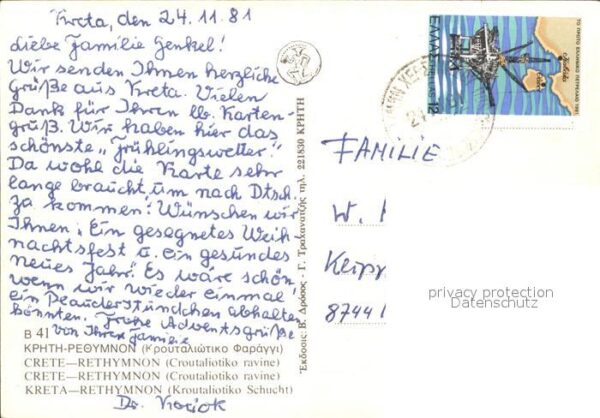 Kreta, den 24.11.81
Liebe Familie Genkel!
Wir senden Ihnen herzliche
Grüße aus Kreta. Vielen
Dank für Ihren lb. Karten-
gruß. Wir haben hier das
schönste „Frühlingswetter."
Da wohl die Karte sehr
lange braucht um nach Dtschl.
zu kommen! Wünschen wir
Ihnen: Ein gesegnetes Weih-
nachtsfest u. ein gesundes
neues Jahr. Es wäre schön,
wenn wir wieder einmal
ein Plauderstündchen abhalten
könnten. Frohe Adventsgrüße
von Ihrer Familie
B 41
ΚΡΗΤΗ-ΡΕΘΥΜΝΟΝ (Κρουταλιώτικο Φαράγγι)
CRETE—RETHYMNON (Croutaliotiko ravine)
CRETE—RETHYMNON (Croutaliotiko ravine)
KRETA—RETHYMNON (Kroutaliotiko Schucht)
Dr.
Έκδοσις: Β. Δρόσος - Γ. Τραχανατζής τηλ. 221830 ΚΡΗΤΗ
ΕΛΛΑΣ
HELLAS
12
ΤΟ ΠΡΩΤΟ ΕΛΛΗΝΙΚΟ ΠΕΤΡΕΛΑΙΟ 1981
FAMILIE
W.
8744
privacy protection
Datenschutz